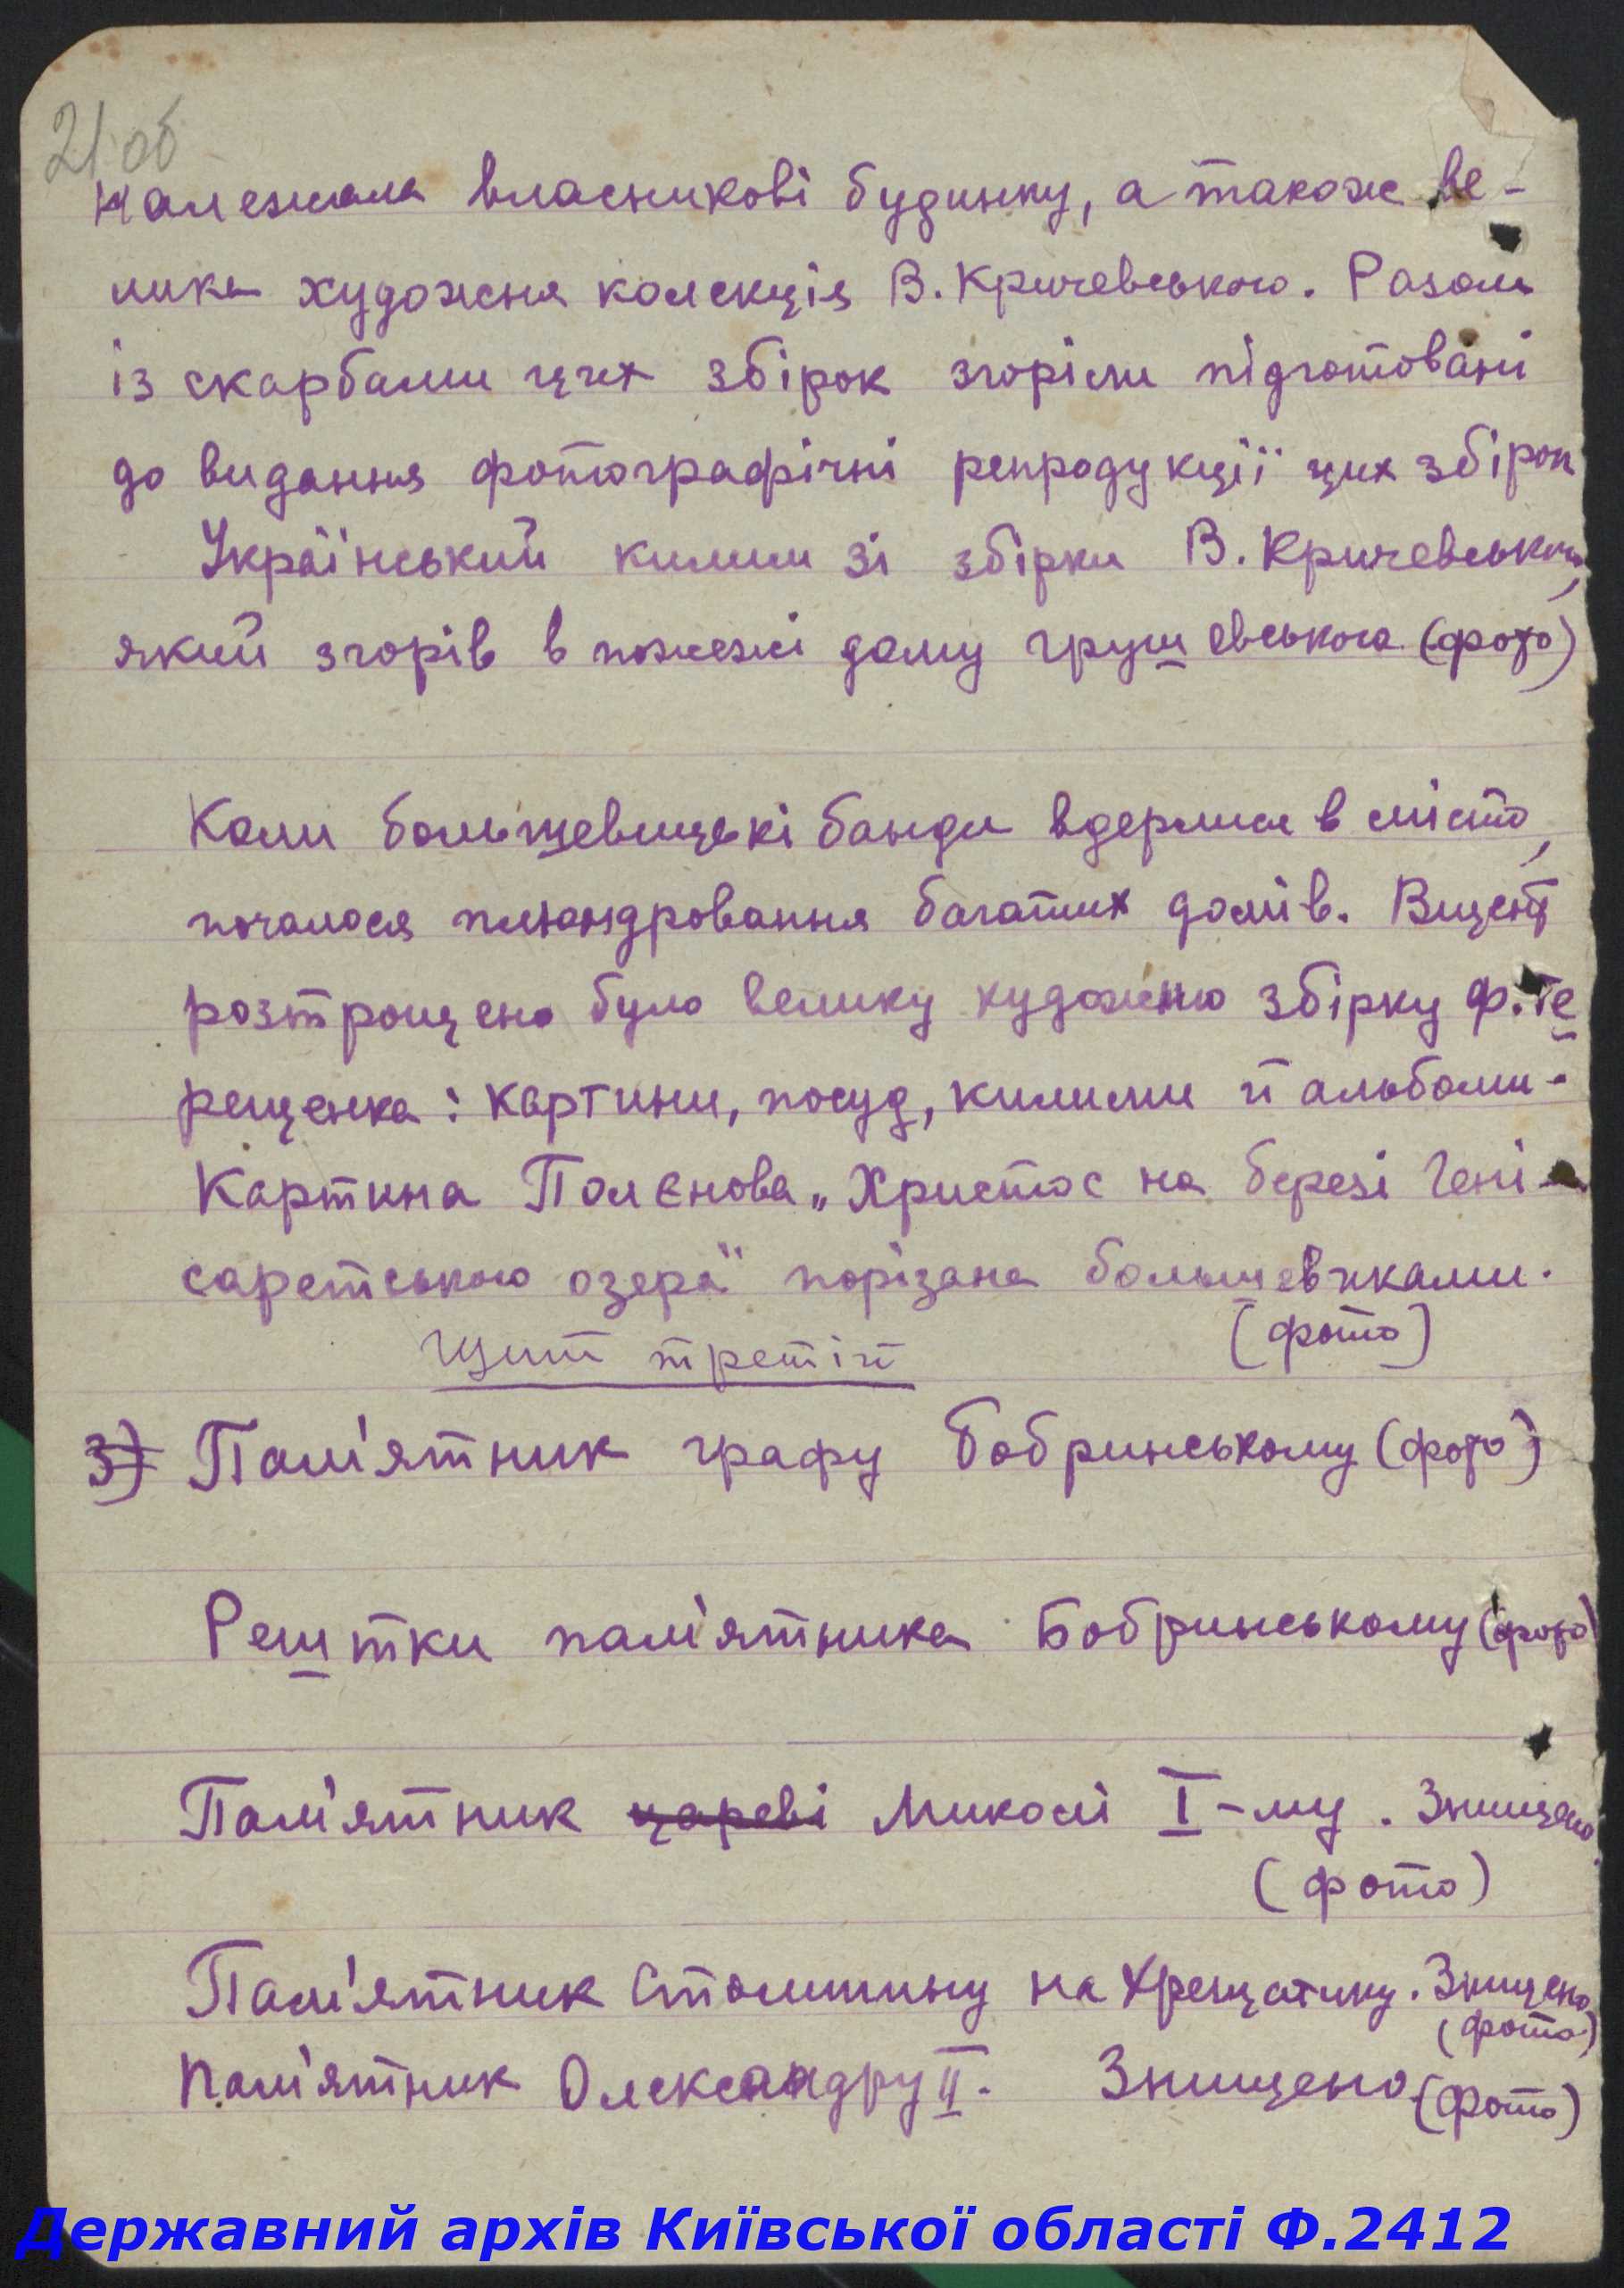 21 об
належала власникові будинку, а також ве-
лика художня колекція В. Кричевського. Разом
із скарбами цих збірок згоріли підготовані
до видання фотографічні репродукції цих збірок
Український килим зі збірки В. Кричевського,
який згорів в пожежі дому Грушевського (фото)
Коли большевицькі банди вдерлися в місто,
почалося плюндровання багатих домів. Вщент
розтрощено було велику художню збірку Ф. Те
рещенка: картини, посуд, килими й альбоми.
Картина Полєнова „Христос на березі Гені-
саретського озера" порізана большевиками.
(фото)
Щит третій
3) Пам'ятник графу Бобринському (фото)
Рештки пам'ятника Бобринському (фото)
Пам'ятник цареві Миколі I-му. Знищено.
(фото)
Пам'ятник Столипину на Хрещатику. Знищено
(фото)
Пам'ятник Олександру II. Знищено (фото)
Державний архів Київської області Ф.2412